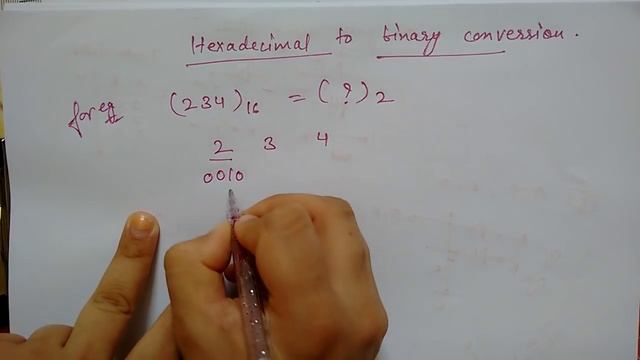 Hexadecimal to binary conversion.
for eg (234)16 = (?)2
2 3 4
0010